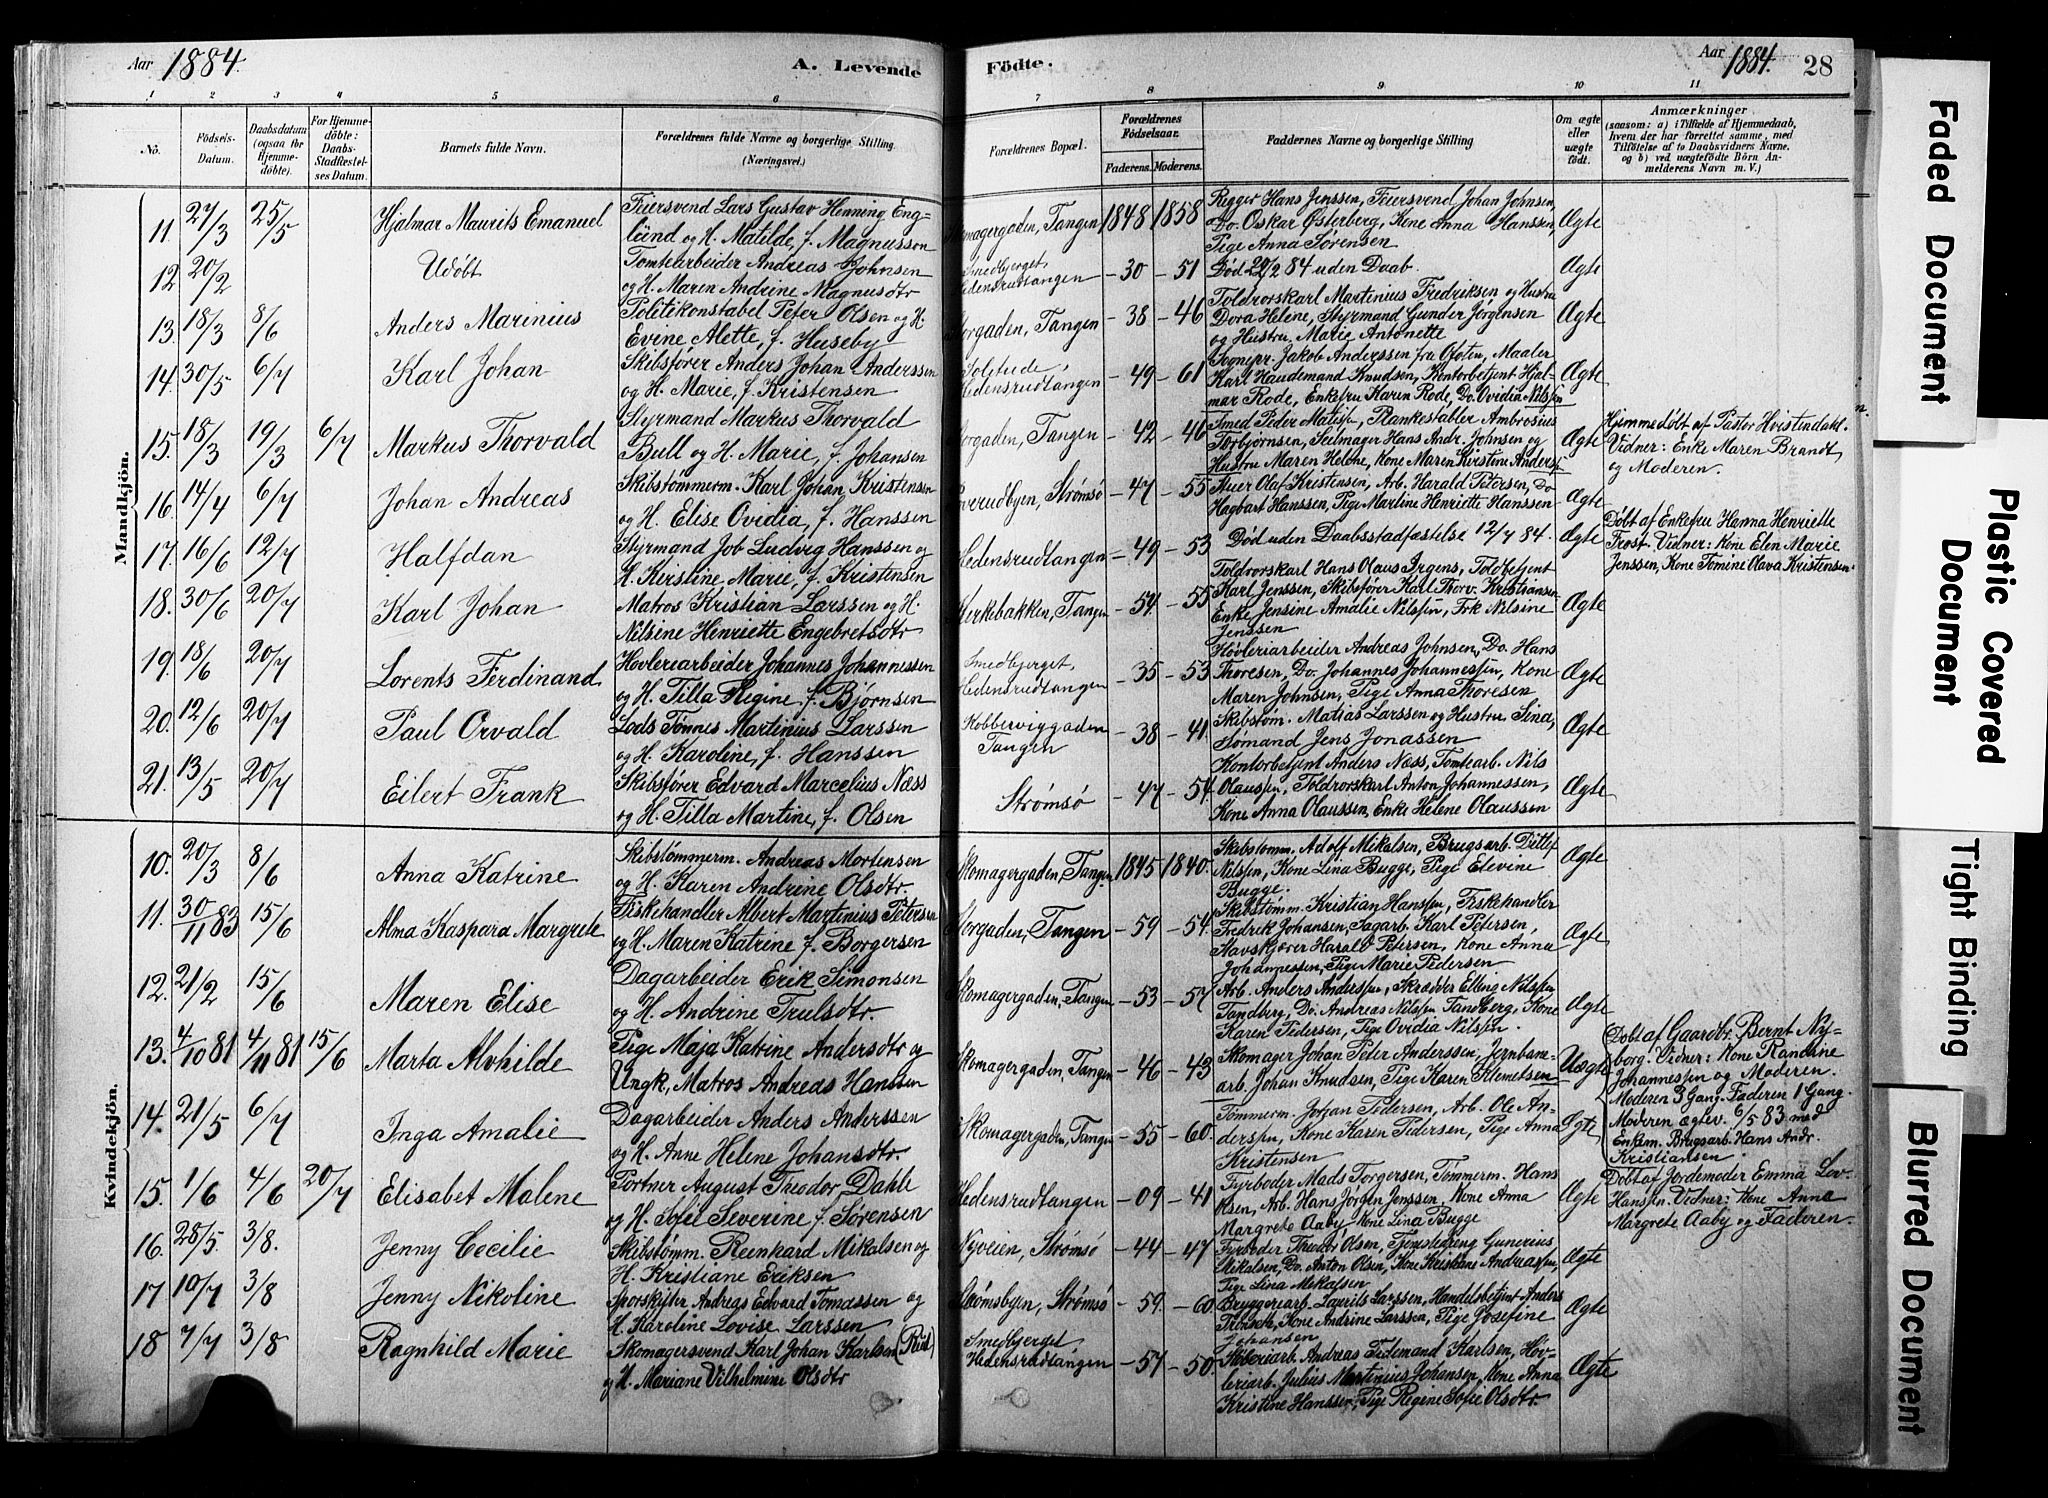 Aar 1884.
A. Levende
Födte.
Aar 1884.
28
1 2 3 4 5 6 7 8 9 10 11
No.
Födsels-
Datum.
Daabsdatum
(ogsaa for
Hjemme-
döbte).
For Hjemme-
döbte:
Daabs-
Stadfæstel-
ses Datum.
Barnets fulde Navn.
Forældrenes fulde Navne og borgerlige Stilling
(Næringsvei.)
Forældrenes Bopæl.
Forældrenes
Födselsaar.
Faderens. Moderens.
Faddernes Navne og borgerlige Stilling
Om ægte
eller
uægte
født.
Anmærkninger
(saasom: a) i Tilfælde af Hjemmedaab,
hvem der har forrettet samme, med
Tilföielse af to Daabsvidners Navne.
og b) ved uægtefödte Börn An-
melderens Navn m. V.)
Mandkjön.
11. 27/3 25/5 Hjalmar Maurits Emanuel
Feiersvend Lars Gustav Henning Eng-
lund og H. Matilde, f. Magnusson
Skomagergaden, Tangen 1848 1858
Regger Hans Jenssen, Feiersvend Johan Johnsen,
Do. Oskar Østerberg, Kone Anna Hanssen,
Pige Anna Sørensen
Ægte
12 20/2 Udøbt
Tomtearbeider Andreas Johnsen
og H. Maren Andrine Magnusdtr
Smedbjerget
Hedensrudtangen -30 -51
Død 20/2 84 uden Daab.
Ægte
13. 18/3 8/6 Anders Marinius
Politikonstabel Peter Olsen og H.
Evine Alette, f. Huseby
Storgaden, Tangen -38 -46
Toldrorskarl Martinius Fredriksen og Hustru
Dora Helene, Styrmand Gunder Jørgensen
og Hustru Marie Antonette
Ægte
14. 30/5 6/7 Karl Johan
Skibsfører Anders Johan Anderssen
og H. Marie, f. Kristensen
Hedensrudtangen -49 -61
Sognepr. Jakob Anderssen fra Ofoten, Maaler
Karl Haudemand Knudsen, Kontorbetjent Hjal-
mar Rode, Enkefru Karen Rode, Do. Ovidia Nilssen
Ægte
15. 18/3 19/3 6/7 Markus Thorvald
Styrmand Markus Thorvald
Bull og H. Marie, f. Johansen
Storgaden, Tangen -42 -46
Smed Peder Matissen, Plankestabler Ambrosius
Torbjørnsen, Seilmager Hans Andr. Johnsen og
Hustru Maren Helene, Kone Maren Kirstine Anderss.
Ægte
Hjemmedøbt af Pastor Hvistendahl.
Vidner: Enke Maren Brandt
og Moderen.
16. 14/4 6/7 Johan Andreas
Skibstømmerm. Karl Johan Kristensen
og H. Elise Ovidia, f. Hanssen
Strømsø -47 -55
Olaf Kristensen, Arb. Harald Petersen, Do
Hagbart Hanssen, Pige Martine Henriette Hanssen
Ægte
17. 16/6 12/7 Halfdan
Styrmand Job Ludvig Hanssen og
H. Kirstine Marie, f. Kristensen
Hedensrudtangen -49 -53
Død uden Daabsstadfæstelse 12/7 84.
Ægte
Døbt af Enkefru Hanna Henriette
Frost. Vidner: Kone Elen Marie
Jenssen, Kone Tomine Olava Kristensen.
18. 30/6 20/7 Karl Johan
Matros Kristian Larssen og H.
Nilsine Henriette Engebretsdtr
Kirkebakken, Tangen -54 -55
Toldrorskarl Hans Olaus Irgens, Toldbetjent
Karl Jenssen, Skibsfører Karl Thorv. Kristiansen
Enke Jensine Amalie Nilssen, Frk Nilsine
Jenssen
Ægte
19. 18/6 20/7 Lorents Ferdinand
Høvleriarbeider Johannes Johannessen
og H. Tilla Regine, f. Bjørnsen
Smedbjerget
Hedensrudtangen -35 -53
Høvleriarbeider Andreas Johnsen, Do. Hans
Thoresen, Do. Johannes Johannessen, Kone
Maren Johnsen, Pige Anna Thoresen
Ægte
20. 12/6 20/7 Paul Orvald
Lods Tønnes Martinius Larssen
og H. Karoline, f. Hanssen
Kobberviggaden
Tangen -38 -41
Skibstøm. Matias Larssen og Hustru Sina,
Sømand Jens Jonassen
Ægte
21. 13/5 20/7 Eilert Frank
Skibsfører Edvard Marcelius Næss
og H. Tilla Martine, f. Olsen
Strømsø -47 -54
Kontorbetjent Anders Næss, Tomtearb. Nils
Olaussen, Toldrorskarl Anton Johannessen,
Kone Anna Olaussen, Enke Helene Olaussen
Ægte
Kvindekjön.
10. 20/3 8/6 Anna Katrine
Skibstømmerm. Andreas Mortensen
og H. Karen Andrine Olsdtr.
Skomagergaden, Tangen 1845 1840.
Skibstømm. Adolf Mikalsen, Brugsarb. Ditlef
Nilssen, Kone Lina Bugge, Pige Elevine
Bugge.
Ægte
11. 30/11 83 15/6 Alma Kaspara Margrete
Fiskehandler Albert Martinius Petersen
og H. Maren Katrine f. Borgersen
Storgaden, Tangen -59 -54.
Skibstømm. Kristian Hanssen, Fiskehandler
Fredrik Johansen, Sagarb. Karl Petersen,
Harald Petersen, Kone Anna
Johannessen, Pige Marie Pedersen
Ægte
12. 21/2 15/6 Maren Elise
Dagarbeider Erik Simonsen
og H. Andrine Trulsdtr.
Skomagergaden, Tangen -53 -57
Arb. Anders Anderssen, Skrædder Elling Nilssen
Tandberg, Do. Andreas Nilssen Tandberg, Kone
Karen Pedersen, Pige Ovidia Nilssen.
Ægte
13. 4/10 81 4/11 81 15/6 Marta Alvhilde
Pige Maja Katrine Andersdtr og
Ungk, Matros Andreas Hanssen
Skomagergaden, Tangen -46 -43
Skomager Johan Peter Anderssen, Jernbane-
arb. Johan Knudsen, Pige Karen Klemetsen
Uægte
Døbt af Gaardbr. Bernt Ny-
borg. Vidner: Kone Randine
Johannessen og Moderen.
Moderen 3 Gang. Faderen 1 Gang.
Moderen ægtev. 6/5 83 med
Enkem. Brugsarb. Hans Andr.
Kristiansen.
14. 21/5 6/7 Inga Amalie
Dagarbeider Anders Anderssen
og H. Anne Helene Johansdtr.
Skomagergaden, Tangen -55 -60.
Tømmerm. Johan Pedersen, Arb. Ole An-
derssen, Kone Karen Pedersen, Pige Anna
Kristensen
Ægte
15. 1/6 4/6 20/7 Elisabet Malene
Portner August Theodor Dahle
og H. Sofie Severine f. Sørensen
Hedensrudtangen -09 -41
Fyrbøder Mads Torgersen, Tømmerm. Hans
Olsen, Arb. Hans Jørgen Jenssen, Kone Anna
Margrete Aaby, Kone Lina Bugge
Ægte
Døbt af Jordemoder Emma Lov-
Hanssen. Vidner: Kone Anna
Margrete Aaby og Faderen.
16. 28/5. 3/8. Jenny Cecilie
Skibstømm. Reinhard Mikalsen og
H. Kristiane Eriksen
Nyveien, Strømsø -44 -47
Fyrbøder Theodor Olsen, Tjenstedreng Gunerius
Mikalsen, Do. Anton Olsen, Kone Kristiane Andreassen,
Pige Lina Mikalsen
Ægte
17 10/7 3/8 Jenny Nikoline
Sporskifter Andreas Edvard Tomassen og
H. Karoline Lovise Larssen
Strømsbyen, Strømsø -59. -60.
Bryggeriarb. Laurits Larssen, Handelsbetjent Anders
Kone Andrine Larssen, Pige Josefine
Johansen
Ægte
18 7/7 3/8 Ragnhild Marie
Skomagersvend Karl Johan Karlsen
og H. Mariane Vilhelmine Olsdtr
Smedbjerget
Hedensrudtangen -57 -50.
Andreas Tidemand Karlsen, Høv-
leriarb. Julius Martinius Johansen, Kone Anna
Kristine Hanssen, Pige Regine Sofie Olsdtr.
Ægte
Faded Document
Plastic Covered
Document
Tight Binding
Blurred Document